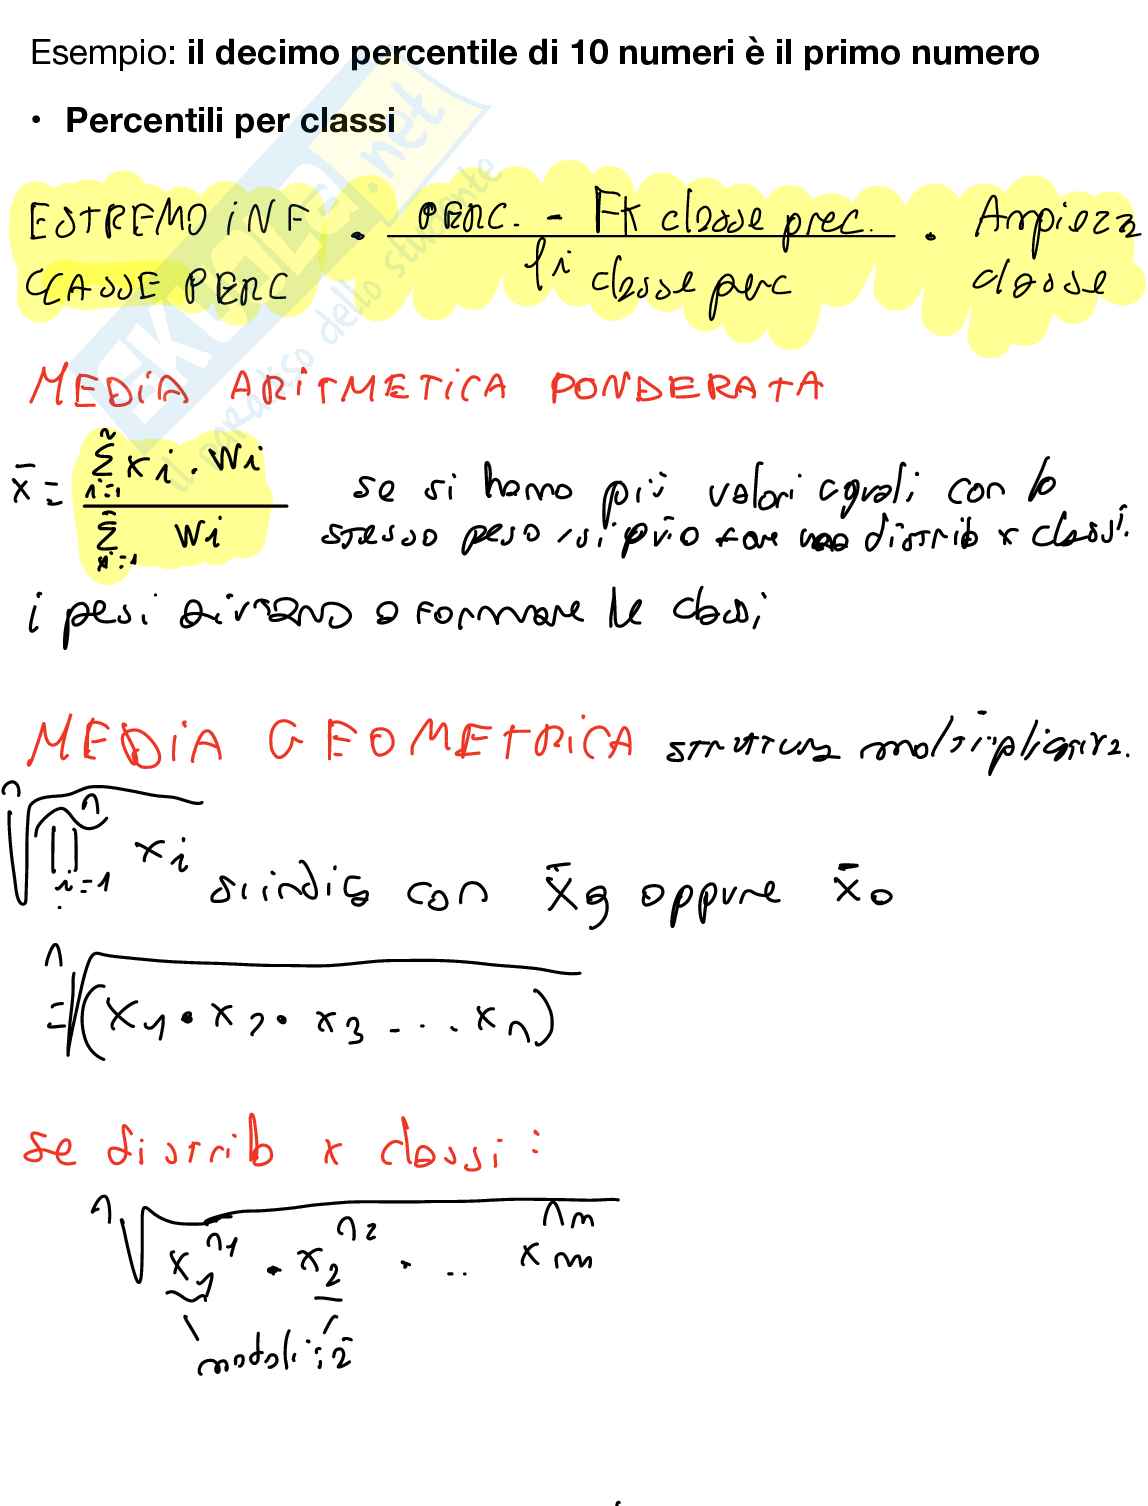 Esempio: il decimo percentile di 10 numeri è il primo numero
• Percentili per classi
ESTREMO iNF CLASSE PERC · PERC. - Fk classe prec. / fi classe perc · Ampiezza classe
MEDiA ARiTMETiCA PONDERATA
x̄ = Σ i=1 n xi · wi / Σ i=1 n wi
se si hanno più valori uguali con lo
stesso peso, si può fare una distrib x classi.
i pesi a formare le classi
MEDiA GEOMETRiCA struttura moltiplicativa.
n√ ∏ i=1 n xi
si indica con x̄g oppure x̄0
= n√(x1 · x2 · x3 - ... xn)
se distrib x classi:
n√ x1^n1 · x2^n2 · .. xm^nm
modalità
EKUOLE.net
il paradiso dello studente